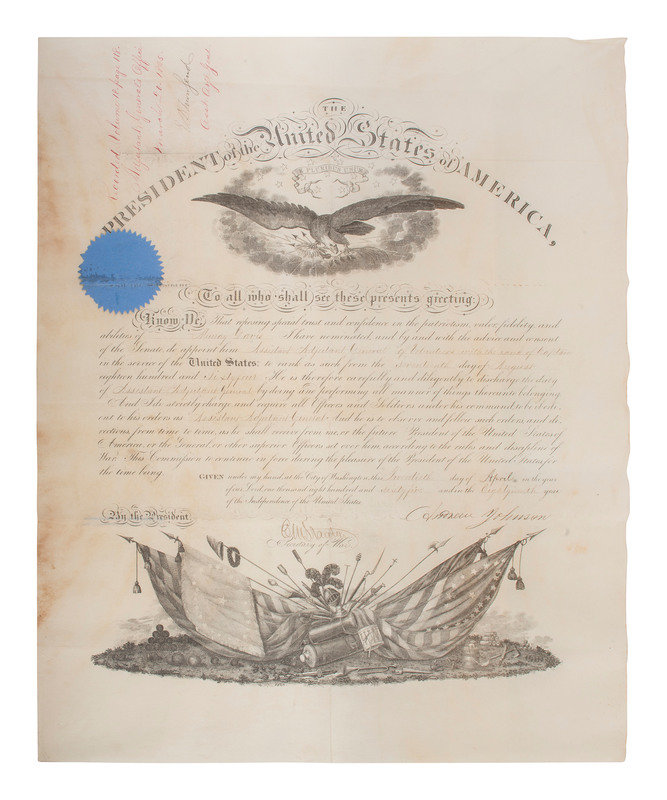 Recorded Volume 10 page 118
Adjutant General's Office
1865
Asst Adjt Genl
THE
PRESIDENT of the United States of AMERICA,
E PLURIBUS UNUM
To all who shall see these presents greeting:
Know Ye, That reposing special trust and confidence in the patriotism, valor, fidelity and
abilities of I have nominated, and by and with the advice and consent
of the Senate, do appoint him Assistant Adjutant General of Volunteers with the rank of Captain
in the service of the United States: to rank as such from the day of August
eighteen hundred and He is therefore carefully and diligently to discharge the duty
of Assistant Adjutant General by doing and performing all manner of things thereunto belonging.
And I do strictly charge and require all Officers and Soldiers under his command to be obedi-
ent to his orders as Assistant Adjutant General And he is to observe and follow such orders and di-
rections from time to time, as he shall receive from me or the future President of the United States of
America, or the General or other superior Officers set over him according to the rules and discipline of
War. This Commission to continue in force during the pleasure of the President of the United States for
the time being.
GIVEN under my hand, at the City of Washington, this Twentieth day of April in the year
of our Lord one thousand eight hundred and sixty five and in the Eighty ninth year
of the Independence of the United States.
By the President
Andrew Johnson
Edwin M Stanton
Secretary of War.